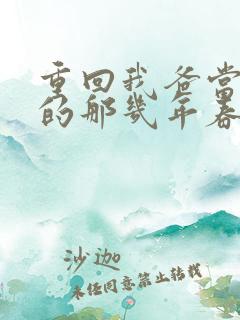 重回我爸当
的那几年春
沙迦
未经同意禁止转载